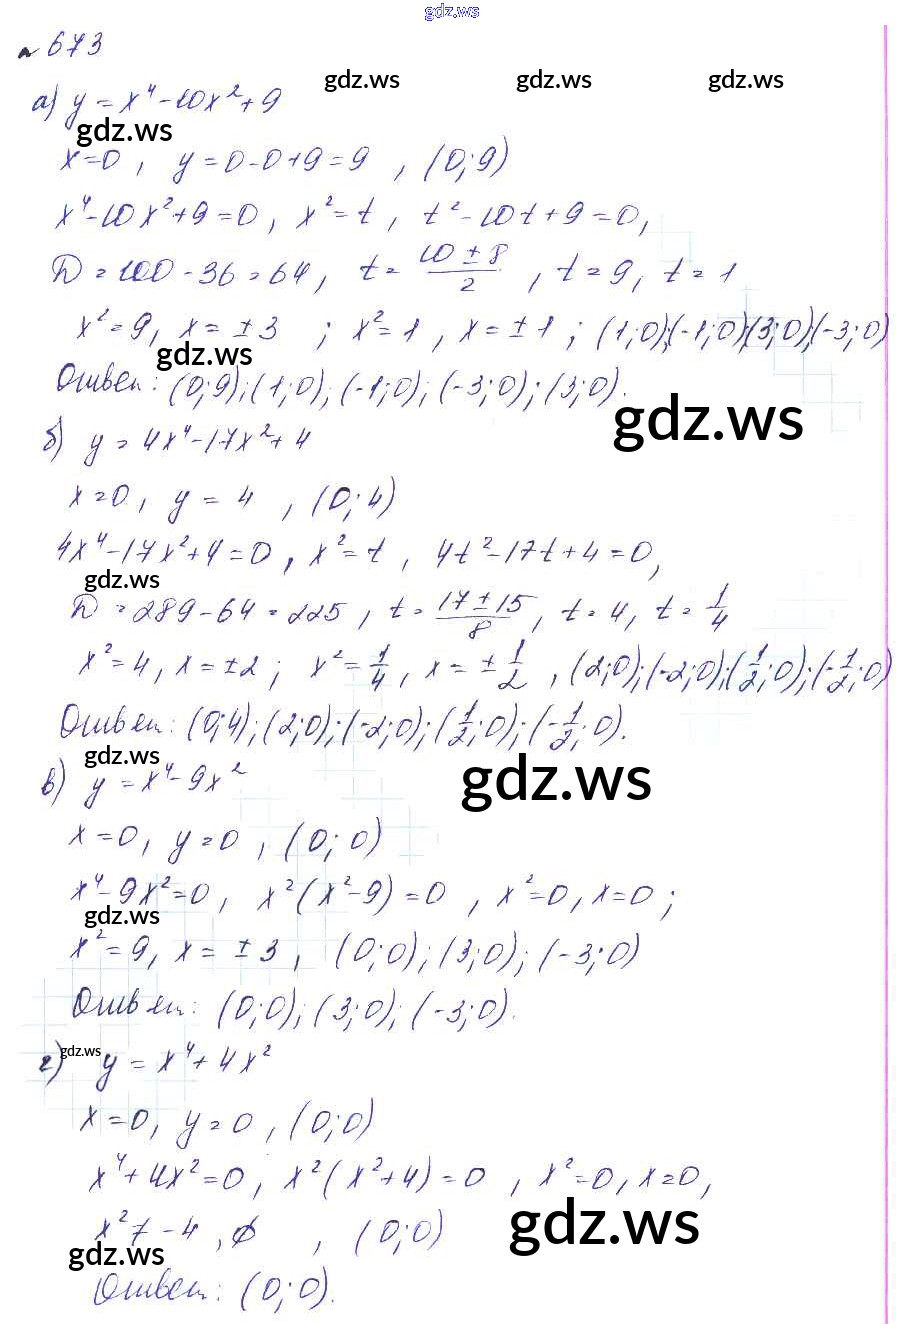 gdz.ws
№ 673
gdz.ws gdz.ws gdz.ws
а) y = x⁴ - 10x² + 9
gdz.ws
x = 0, y = 0 - 0 + 9 = 9, (0; 9)
x⁴ - 10x² + 9 = 0, x² = t, t² - 10t + 9 = 0,
D = 100 - 36 = 64, t = (10 ± 8)/2, t = 9, t = 1
x² = 9, x = ± 3; x² = 1, x = ± 1; (1; 0); (-1; 0); (3; 0); (-3; 0)
gdz.ws
Ответ: (0; 9); (1; 0); (-1; 0); (-3; 0); (3; 0).
gdz.ws
б) y = 4x⁴ - 17x² + 4
x = 0, y = 4, (0; 4)
4x⁴ - 17x² + 4 = 0, x² = t, 4t² - 17t + 4 = 0,
gdz.ws
D = 289 - 64 = 225, t = (17 ± 15)/8, t = 4, t = 1/4
x² = 4, x = ± 2; x² = 1/4, x = ± 1/2, (2; 0); (-2; 0); (1/2; 0); (-1/2; 0)
Ответ: (0; 4); (2; 0); (-2; 0); (1/2; 0); (-1/2; 0).
gdz.ws gdz.ws
в) y = x⁴ - 9x²
x = 0, y = 0, (0; 0)
x⁴ - 9x² = 0, x²(x² - 9) = 0, x² = 0, x = 0;
gdz.ws
x² = 9, x = ± 3, (0; 0); (3; 0); (-3; 0)
Ответ: (0; 0); (3; 0); (-3; 0).
gdz.ws
г) y = x⁴ + 4x²
x = 0, y = 0, (0; 0)
x⁴ + 4x² = 0, x²(x² + 4) = 0, x² = 0, x = 0,
gdz.ws
x² ≠ -4, ∅, (0; 0)
gdz.ws
Ответ: (0; 0).